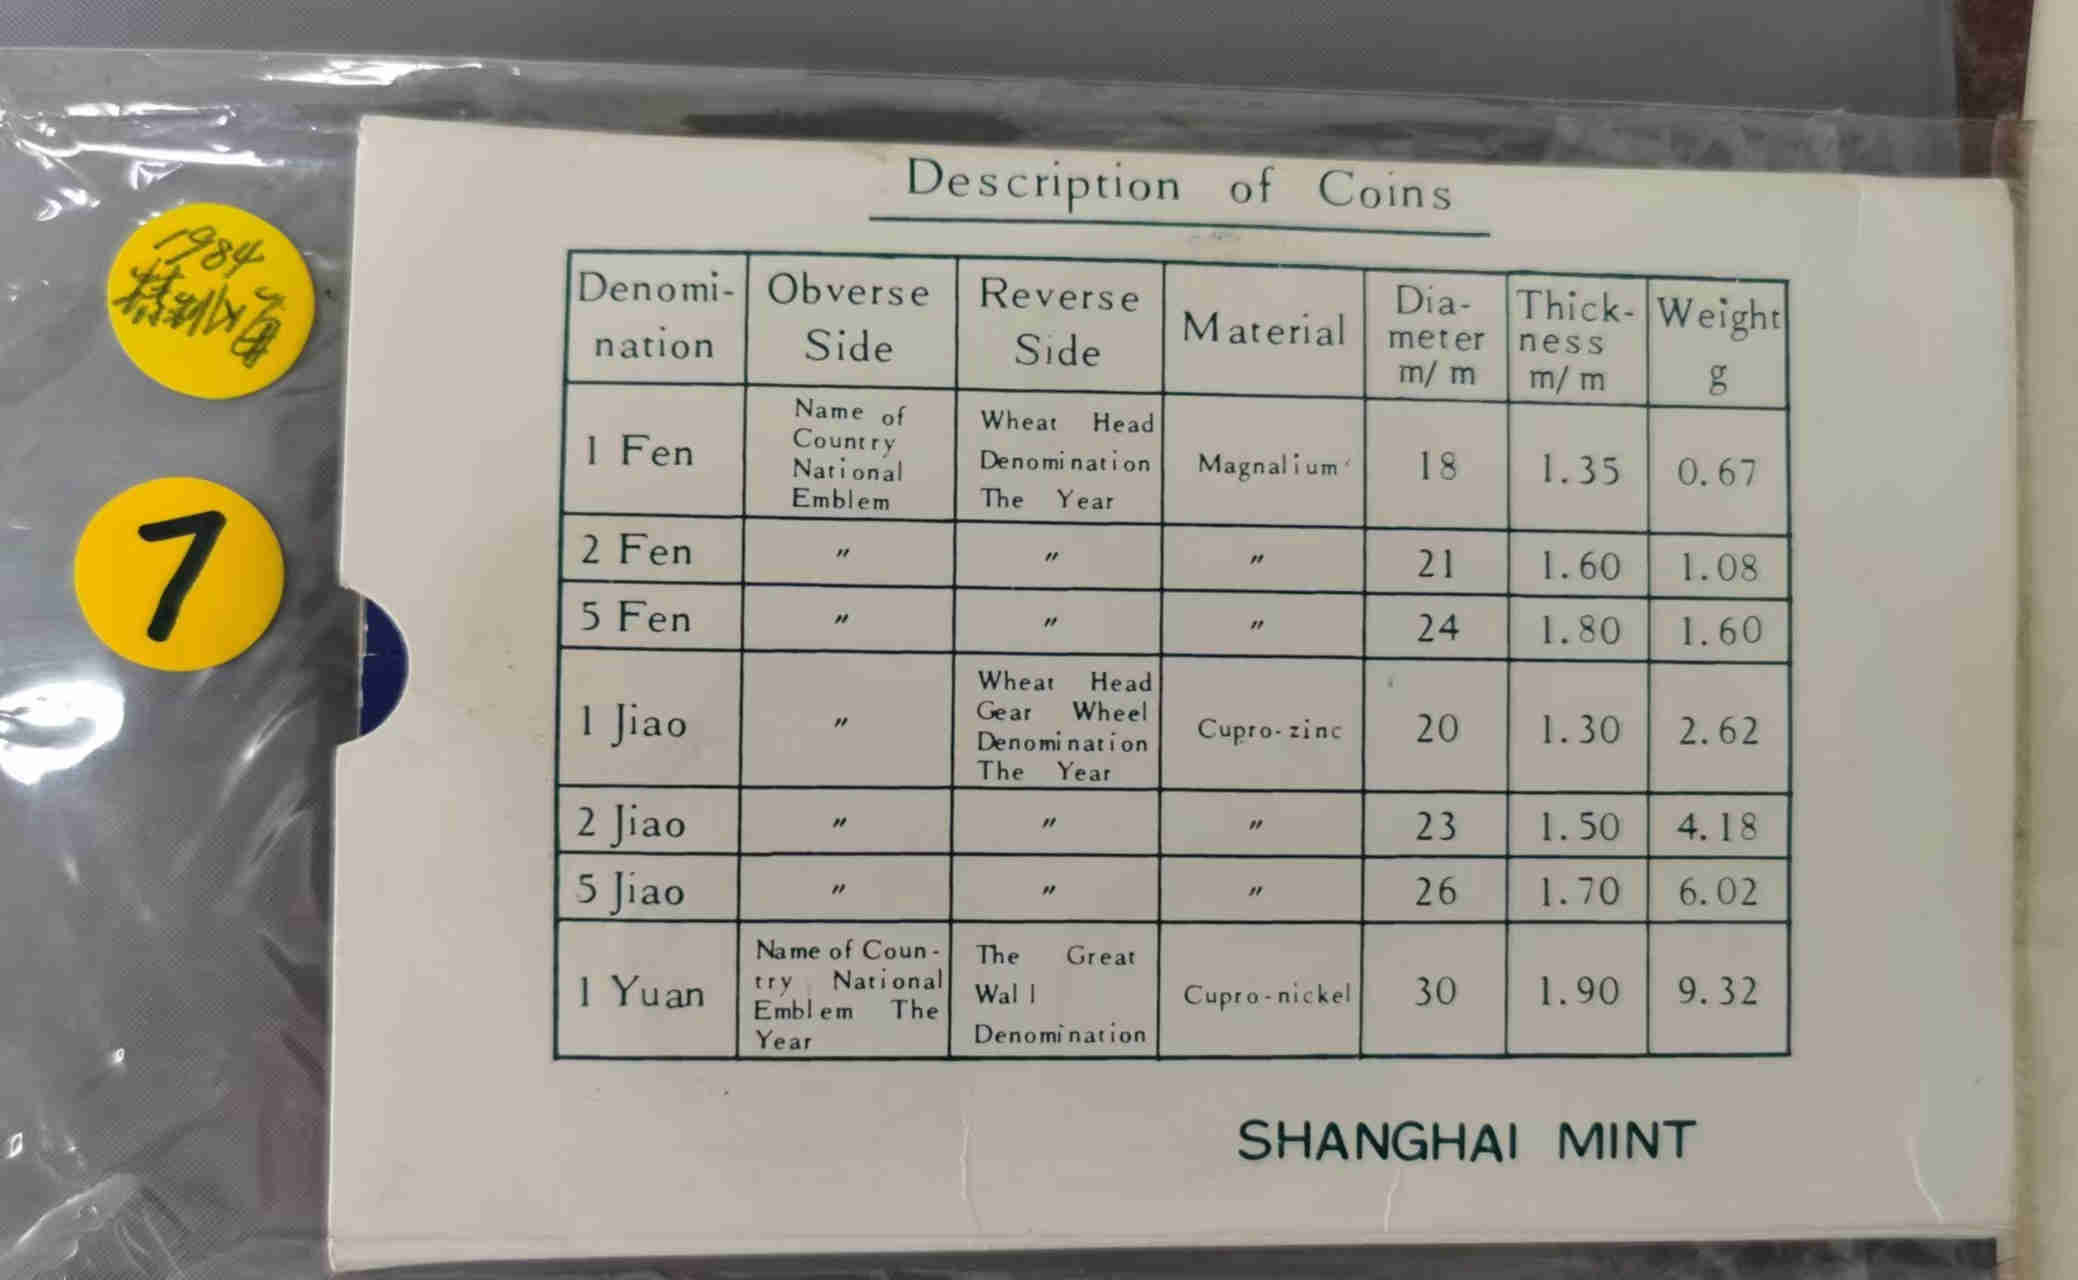 Description of Coins
Denomi-
nation
Obverse
Side
Reverse
Side
Material
Dia-
meter
m/m
Thick-
ness
m/m
Weight
g
1 Fen
Name of
Country
National
Emblem
Wheat Head
Denomination
The Year
Magnalium
18
1.35
0.67
2 Fen
〃
〃
〃
21
1.60
1.08
5 Fen
〃
〃
〃
24
1.80
1.60
1 Jiao
〃
Wheat Head
Gear Wheel
Denomination
The Year
Cupro-zinc
20
1.30
2.62
2 Jiao
〃
〃
〃
23
1.50
4.18
5 Jiao
〃
〃
〃
26
1.70
6.02
1 Yuan
Name of Coun-
try National
Emblem The
Year
The Great
Wall
Denomination
Cupro-nickel
30
1.90
9.32
SHANGHAI MINT
1984
7